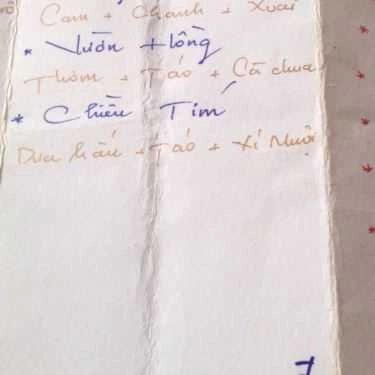 Cam + Chanh + Xoài
* Vườn Hồng
Thơm + Táo + Cà chua
* Chiều Tím
Dưa hấu + Táo + Xí Muội
7